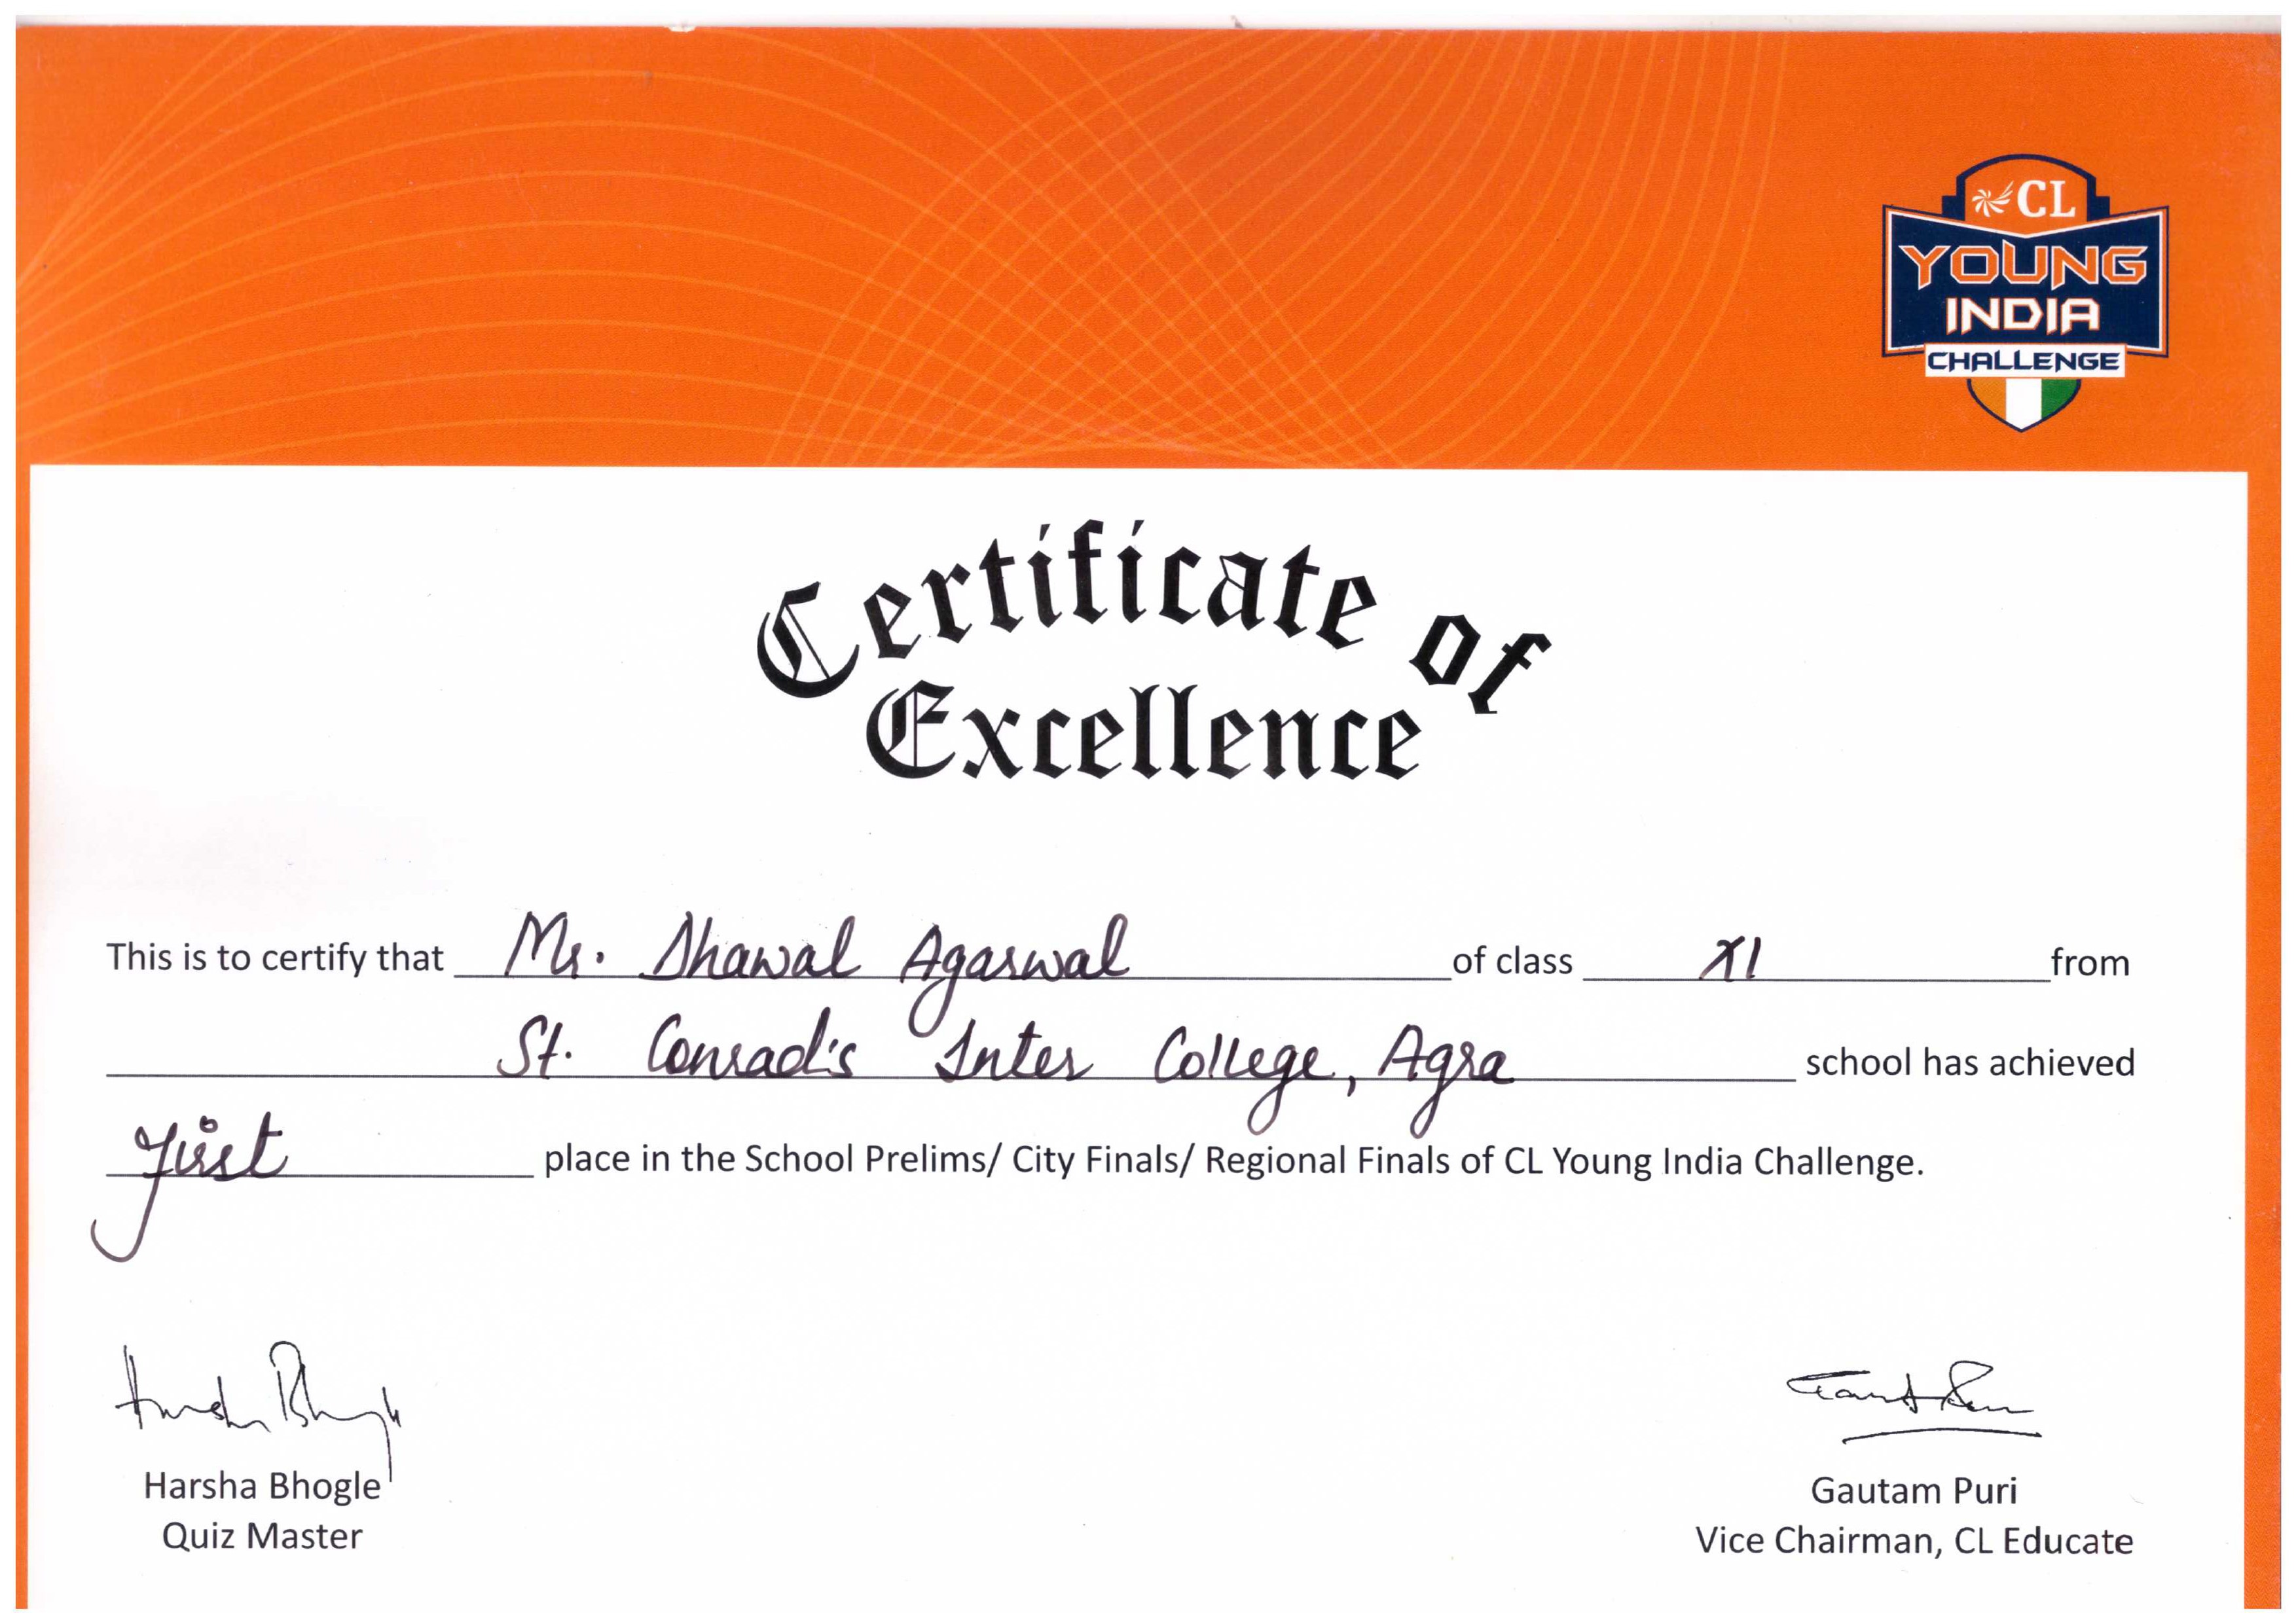 CL
YOUNG
INDIA
CHALLENGE
Certificate of
Excellence
This is to certify that Mr. Dhawal Agarwal of class XI from
St. Conrad's Inter College, Agra school has achieved
First place in the School Prelims/ City Finals/ Regional Finals of CL Young India Challenge.
Harsha Bhogle
Harsha Bhogle
Quiz Master
Gautam Puri
Vice Chairman, CL Educate